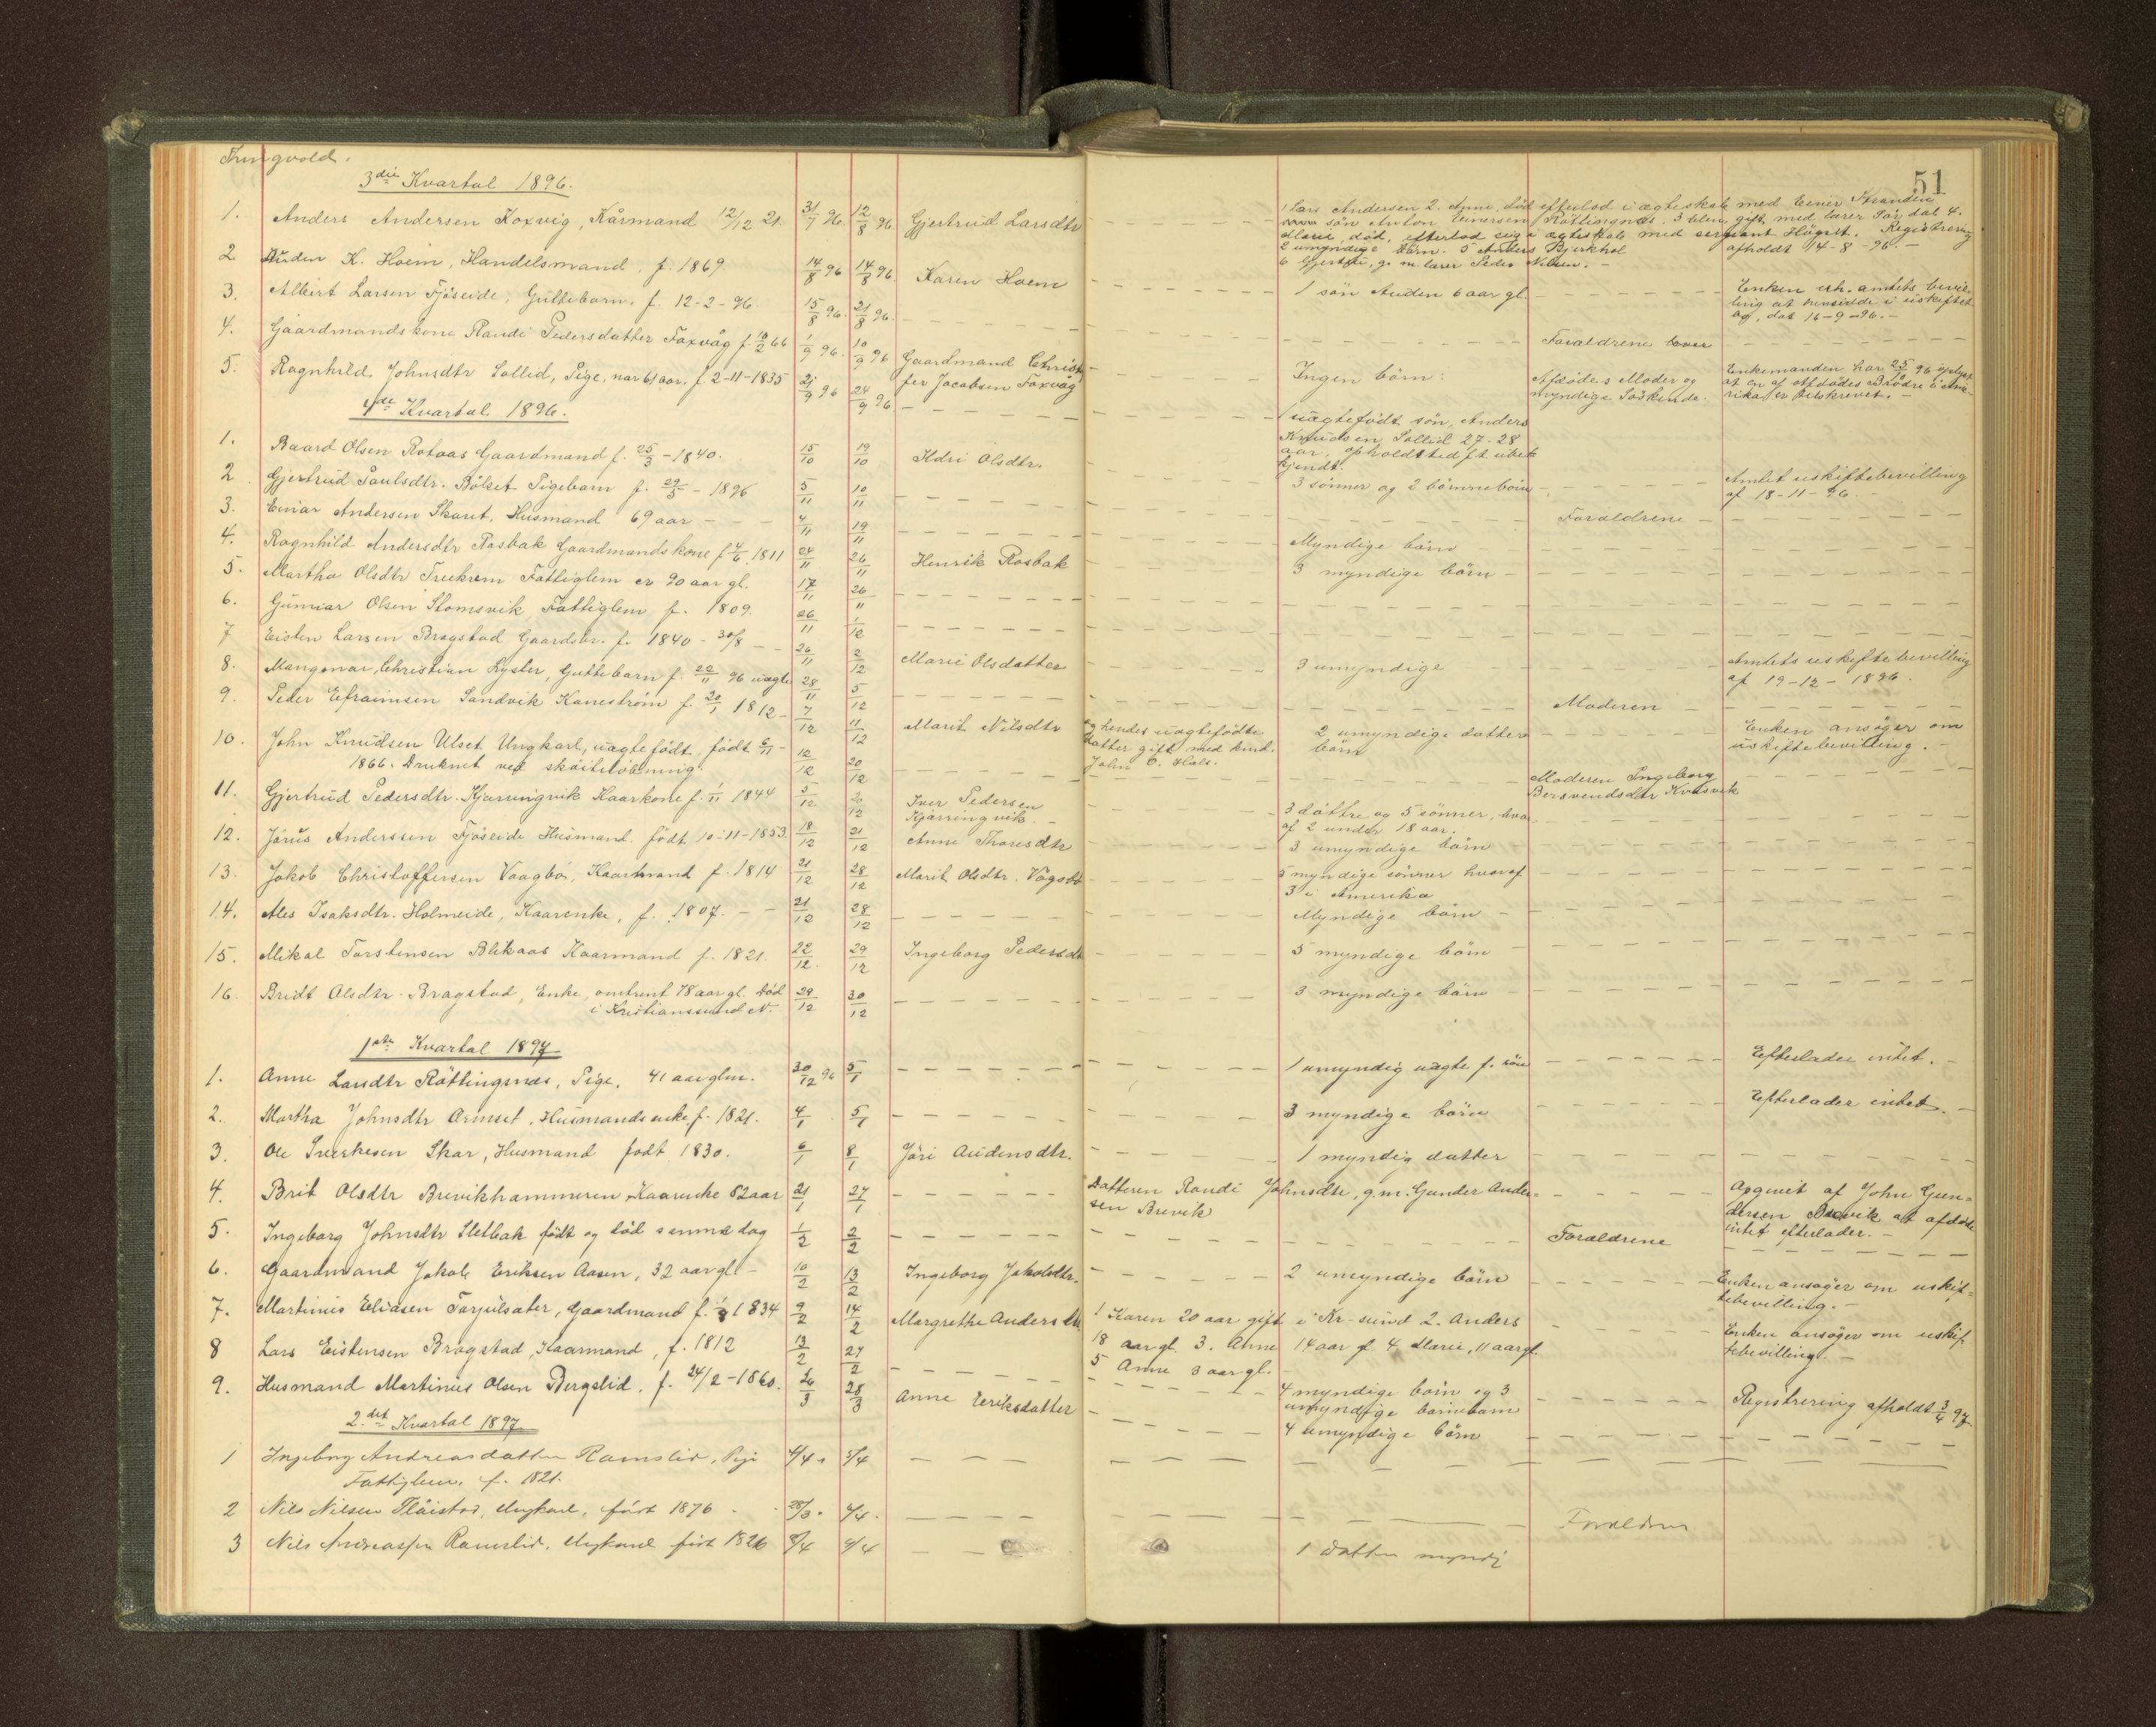 Tingvold.
51
3die Kvartal 1896.
1. Anders Andersen Koxvig, Kårmand 12/12 21. 31/7 96. 12/8 96. Gjertrud Larsdtr
1 Lars Andersen 2. Anne, død efterlod i ægteskab med Einer Stranden
søn Anton Einersen Röttingsnæs. 3 Elen, gift med lærer Tør dal 4.
Marie, død, efterlod sig i ægteskab med sergeant Högset. Registrering
2 umyndige børn. 5 Anders Bjerkhol afholdt 14-8-96.-
6 Gjertru, g. m. lærer Peder Nilsen.-
2 Auden K. Hoem, Handelsmand, f. 1869. 14/8 96 14/8 96. Karen Hoem
1 sön Auden 6 aar gl. Enken erh. amtets bevil-
ling at hensidde i uskiftet
bo, dat 16-9-96.-
3. Albert Larsen Fjöseide, Guttebarn. f. 12-2-96. 15/8 96. 21/8 96.
Forældrene lever
4. Gaardmandskone Randi Pedersdatter Foxvåg f. 10/2 66 1/9 96. 10/9 96 Gaardmand Christ
fer Jacobsen Foxvåg
Ingen börn: Afdödes Moder og
myndige Söskende.
Enkemanden har 25/10 96 oplyst
at en af afdödes Brödre i Ame-
rika er tilskrevet.-
5. Ragnhild Johnsdtr Sollid, Pige, nar 61 aar. f. 2-11-1835 21/9 96 24/9 96
1 uægtefödt sön, Anders
Knudsen Sollid 27-28
aar, opholdsted ft ubek
kjendt.
4de Kvartal 1896.
1. Baard Olsen Rotaas Gaardmand f. 25/3 - 1840. 15/10 19/10 Ildri Olsdtr.
3 sönner og 2 börneborn Amtet uskiftebevilling
af 18-11-96.
2 Gjertrud Paulsdtr. Bölset Pigebarn f. 29/5 - 1896 5/11 10/11
Forældrene
3. Einar Andersen Skaret. Husmand 69 aar - 4/11 19/11
Myndige börn
4. Ragnhild Andersdtr Rosbak Gaardmandskone f 4/6 1811 24/11 26/11 Henrik Rosbak
3 myndige börn
5. Martha Olsdtr Treekrem Fattiglem er 90 aar gl. 17/11 26/11
6. Gunnar Olsen Stomsvik Fattiglem f. 1809. 26/11 1/12
7 Eisten Larsen Bragstad Gaardbr. f. 1840 - 30/8 - 26/11 2/12 Marie Olsdatter
3 umyndige Amtets uskiftebevilling
af 19-12-1896.
8. Mangonar, Christian Lyster, Guttebarn f. 22/11 96 uægte 28/11 5/12
Moderen
9. Peder Efraimsen Sandvik Kanestrøm f. 20/1 1812 - 7/12 11/12 Marit Nilsdtr
og hendes uægtefödte
Datter gift med hmd.
John O. Hals.
2 umyndige datter
börn Enken ansöger om
uskiftebevilling.-
10. John Knudsen Ulset Ungkarl, uægtefödt, födt 6/11 -
1866. Druknet ved sköitelöbning. 12/12 20/12
Moderen Ingeborg
Bersvendsdtr Kvasvik
11. Gjertrud Pedersdtr. Kjærringvik Kaarkone f. 1/11 1844 5/12 20/12 Iver Pedersen
Kjærringvik.-
3 döttre og 5 sönner, hvor
af 2 under 18 aar.
12. Jörus Anderssen Fjöseide Husmand. födt 10-11-1853. 18/12 21/12 Anne Thoresdtr
3 umyndige börn
13. Jakob Christoffersen Vaagbö, Kaarmand f. 1814 21/12 28/12 Marit Olsdtr. Vågsbö
5 myndige sönner hvoraf
3 i Amerika
14. Ales Isaksdtr. Holmeide, Kaarenke, f. 1807. - - 21/12 28/12
Myndige börn
15. Mikal Torstensen Blikaas Kaarmand f. 1821. 22/12. 29/12 Ingeborg Pedersdt
5 myndige börn
16. Bridt Olsdtr. Bragstad, Enke, omtrent 78 aar gl. Död
i Kristianssund N. 29/12 30/12
3 myndige börn
1ste Kvartal 1897
1. Anne Larsdtr Röttingsnæs, Pige. 41 aar glm. 30/12 96 5/1
1 umyndig uægte f. sön Efterlader intet.
2. Martha Johnsdtr Ormset, Husmandsenke, f. 1821. 4/1 5/1
3 myndige börn Efterlader intet.
3. Ole Sverkesen Skar, Husmand född 1830. 6/1 8/1 Jöri Audensdtr.
1 myndig datter
4. Brit Olsdtr Brevikhammeren Kaarenke 82 aar 21/1 27/1
Datteren Randi Johnsdtr, g. m. Gunder Ander-
sen Brevik
Opgivet af John Gun-
dersen Brevik at afdöde
intet efterlader.-
5. Ingeborg Johnsdtr Sletbak födt og död samme dag 1/2 2/2
Forældrene
6. Gaardmand Jakob Eriksen Aasen, 32 aar gl - 10/2 13/2 Ingeborg Jakobsdtr.
2 umyndige börn Enken ansöger om uskif-
tebevilling.-
7. Martinus Eliasen Torjulsæter, Gaardmand f. 1834 9/2 14/2 Margrethe Andersdtr
1 Karen 20 aar gift i Kr-sund 2. Anders
18 aar gl. 3. Anne 14 aar g 4 Marie, 11 aar gl
5 Anne 3 aar gl.
Enken ansöger om uskif-
tebevilling.-
8 Lars Eistensen Bragstad, Kaarmand, f. 1812 13/2 27/2
4 myndige börn og 3
umyndige börnebarn
9. Husmand Martinus Olsen Bergslid. f. 24/2-1860. 26/3 28/3 Anne Eriksdatter
4 umyndige börn Registrering afholdt 3/4 97.
2.det Kvartal 1897
1 Ingeborg Andreasdatter Ramslid, Pige 4/4 5/4
Fattiglem. f. 1821.
2 Nils Nilsen Flåistad, Ungkarl, född 1876 28/3. 4/4.
Forældrene
3 Nils Andreassen Ramslid. Ungkarl född 1826 8/4 9/4
1 datter myndig